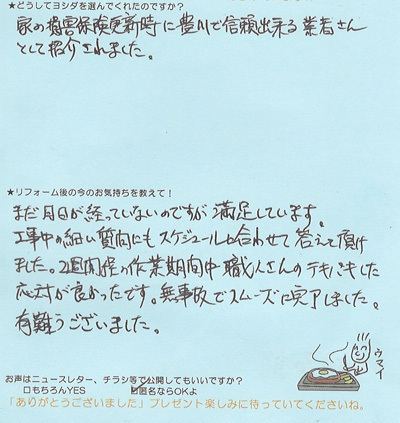 ★どうしてヨシダを選んでくれたのですか？
家の損害保険更新時に豊川で信頼出来る業者さん
として紹介されました。
★リフォーム後の今のお気持ちを教えて！
まだ月日が経っていないのですが満足しています。
工事中の細い質問にもスケジュールも合わせて答えて頂け
ました。2週間程の作業期間中職人さんのテキパキした
応対が良かったです。無事故でスムーズに完了しました。
有難うございました。
ウマイ
お声はニュースレター、チラシ等で公開してもいいですか？
□もちろんYES　　☑匿名ならOKよ
「ありがとうございました」プレゼント楽しみに待っていてくださいね。